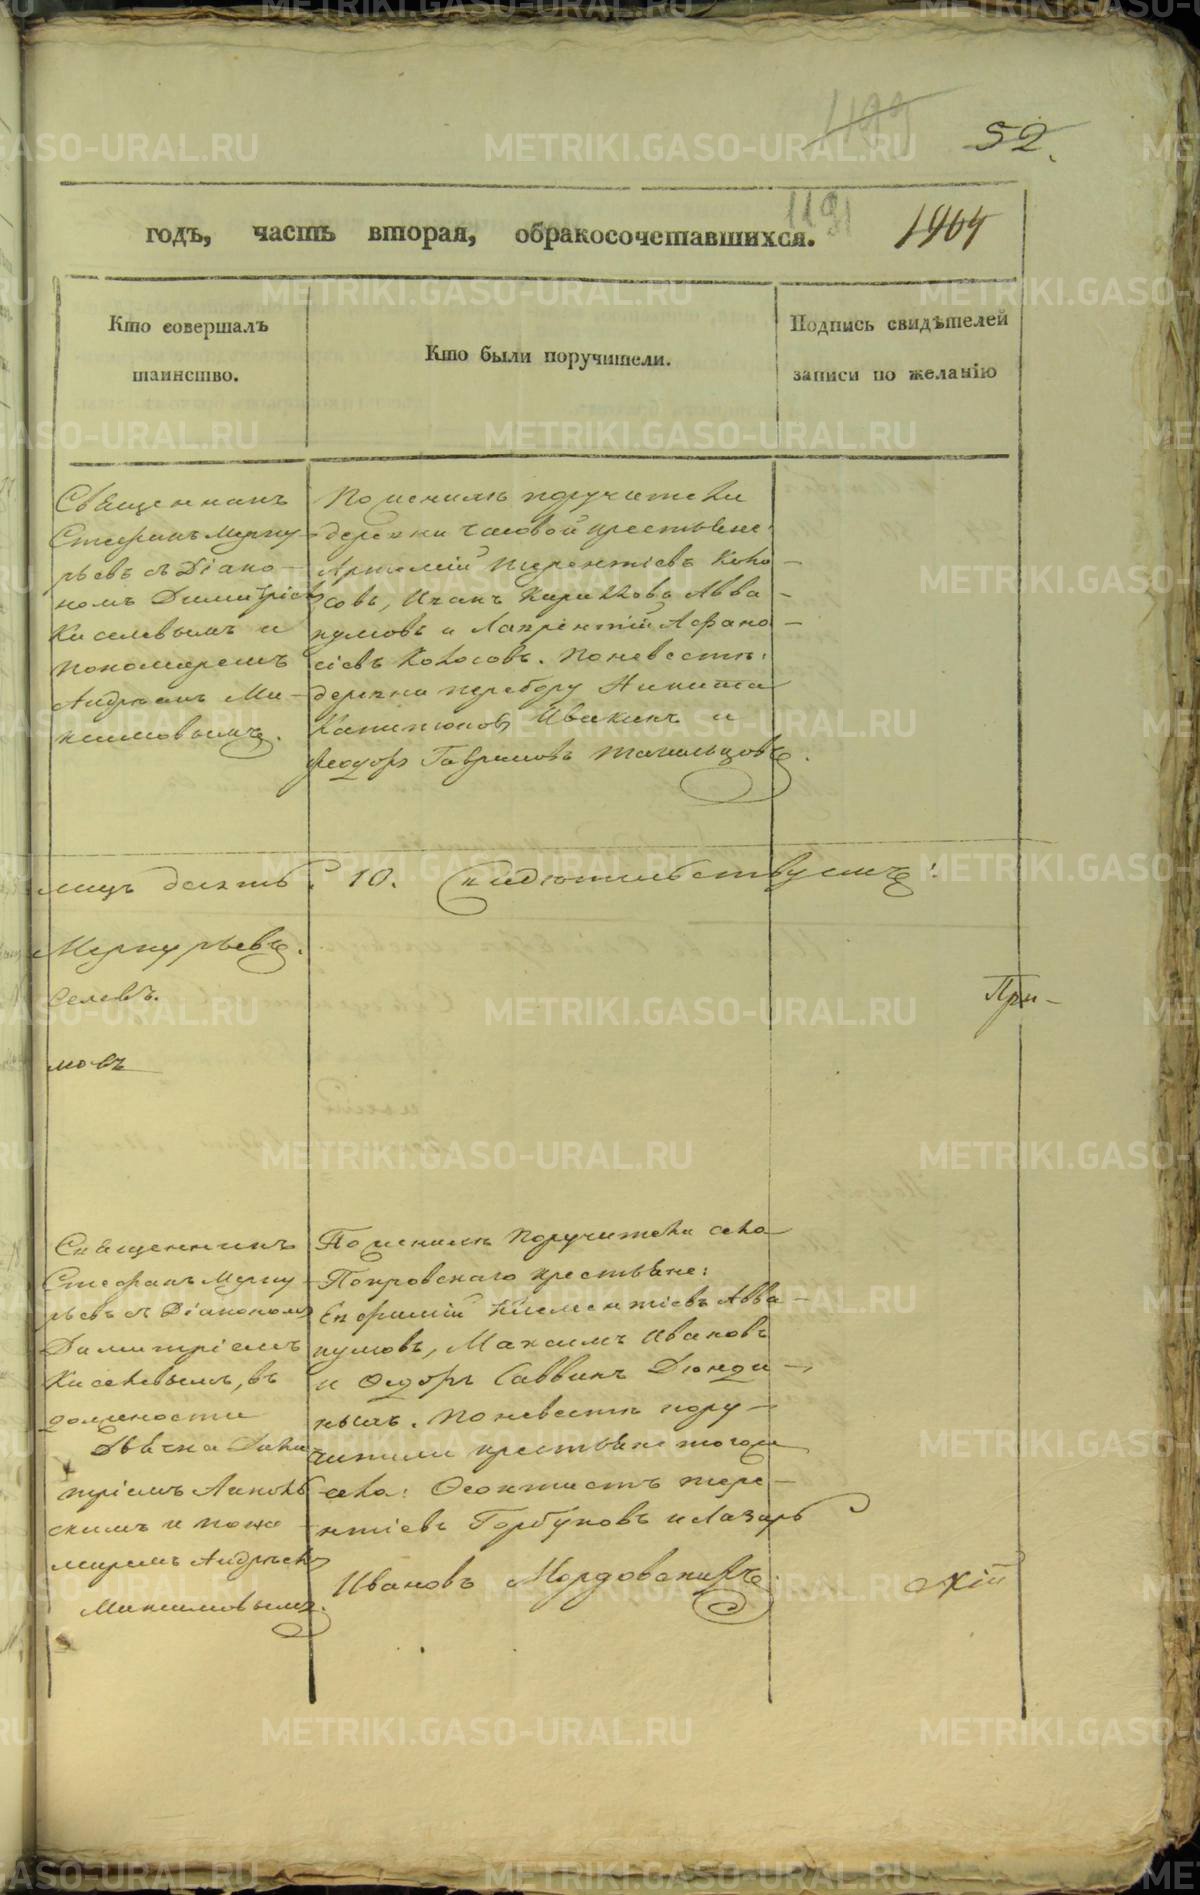 1199
52.
1191
1464
годъ, часть вторая, обракосочетавшихся.
Кто совершалъ
таинство.
Кто были поручители.
Подпись свидѣтелей
записи по желанію
Священникъ
Стефанъ Мерку-
рьевъ съ Діако-
номъ Димитріемъ
Киселевымъ и
пономаремъ
Андреемъ Ма-
ксимовымъ.
По женихѣ поручители
деревни Часовой крестьяне:
Артемій Терентіевъ Коло-
совъ, Иванъ Кирилловъ Авва-
кумовъ и Лаврентій Афана-
сіевъ Колосовъ. По невестѣ:
деревни Перебору Никита
Капитоновъ Ивакинъ и
Феодоръ Гавриловъ Тагильцовъ.
мицъ десять 10. Свидетельствуемъ:
Меркурьевъ.
селевъ.
При-
мовъ
Священникъ
Стефанъ Мерку-
рьевъ съ Діакономъ
Димитріемъ
Киселевымъ, въ
должности
Дьячка Дими-
тріемъ
скимъ и поно-
маремъ Андреемъ
Максимовымъ.
По женихѣ поручители села
Покровскаго крестьяне:
Евфимій Климентіевъ Авва-
кумовъ, Максимъ Ивановъ
и Федоръ Саввинъ Дюнди-
ныхъ. По невестѣ пору-
чители крестьяне того
села: Феоктистъ Тере-
нтіевъ Горбуновъ и Лазарь
Ивановъ Мордовскихъ.